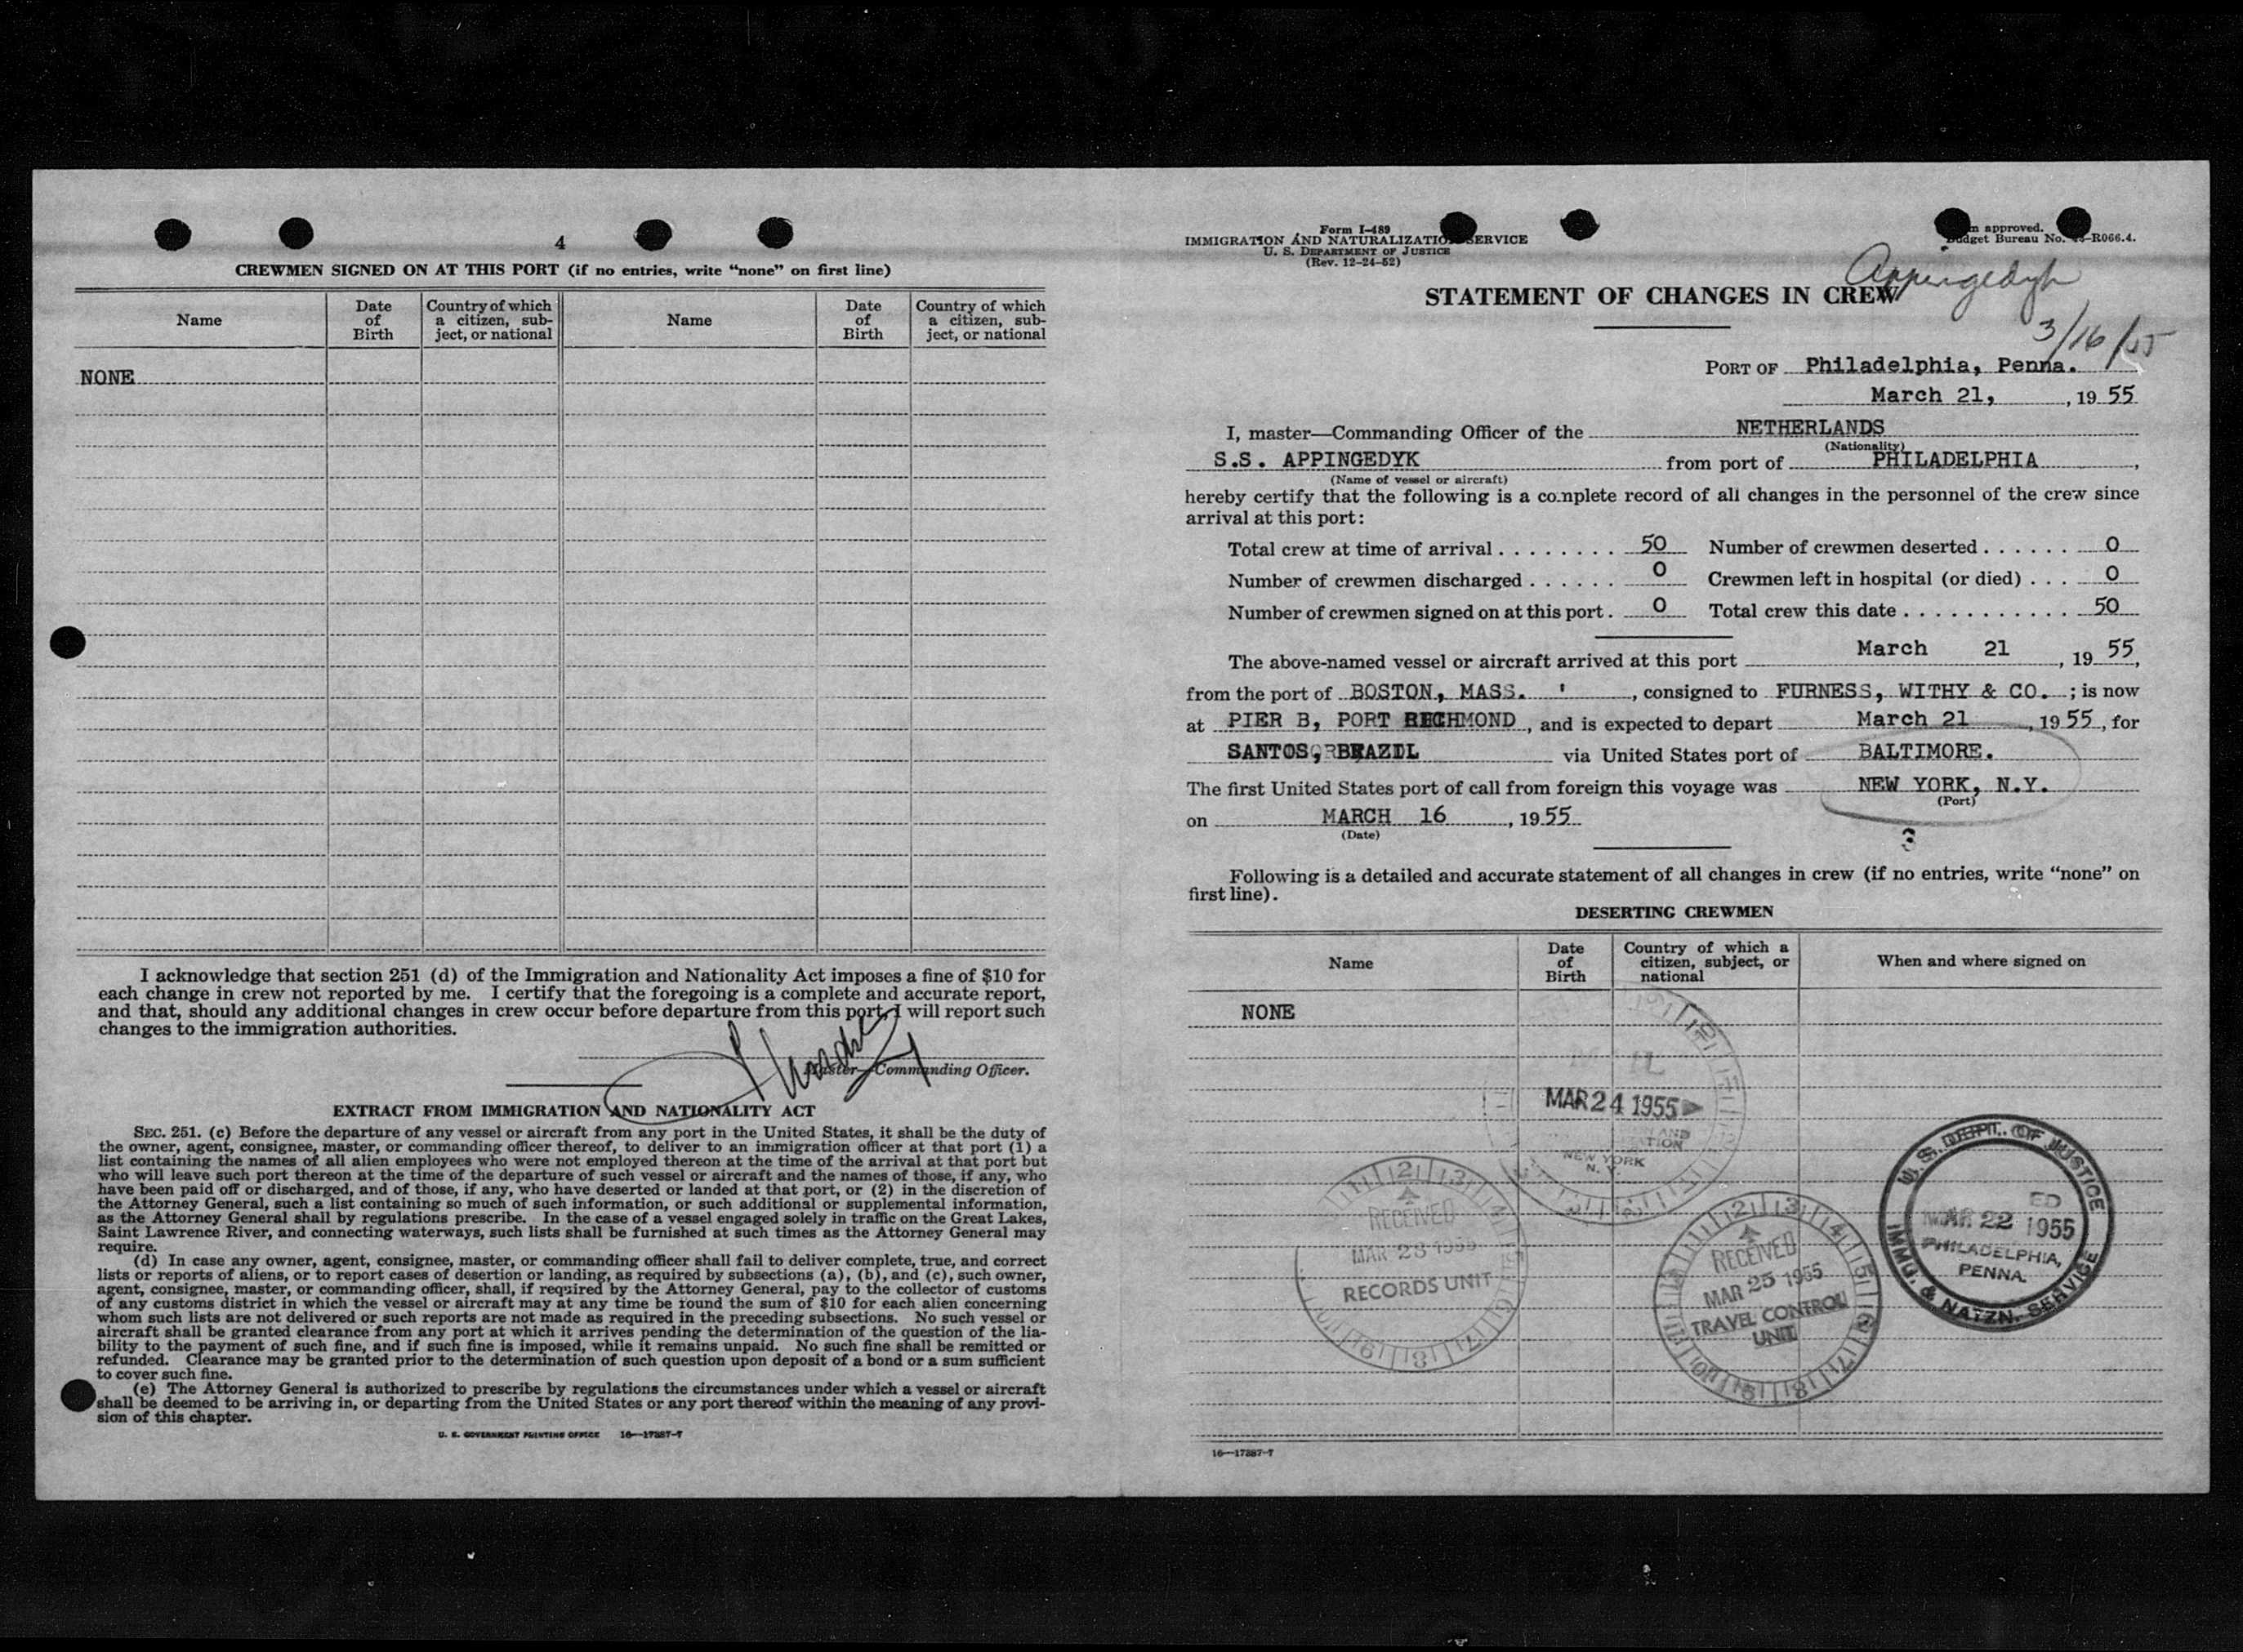 4
CREWMEN SIGNED ON AT THIS PORT (if no entries, write "none" on first line)
Name
Date of Birth
Country of which a citizen, subject, or national
Name
Date of Birth
Country of which a citizen, subject, or national
NONE
I acknowledge that section 251 (d) of the Immigration and Nationality Act imposes a fine of $10 for
each change in crew not reported by me. I certify that the foregoing is a complete and accurate report,
and that, should any additional changes in crew occur before departure from this port, I will report such
changes to the immigration authorities.
Master—Commanding Officer.
EXTRACT FROM IMMIGRATION AND NATIONALITY ACT
SEC. 251. (c) Before the departure of any vessel or aircraft from any port in the United States, it shall be the duty of
the owner, agent, consignee, master, or commanding officer thereof, to deliver to an immigration officer at that port (1) a
list containing the names of all alien employees who were not employed thereon at the time of the arrival at that port but
who will leave such port thereon at the time of the departure of such vessel or aircraft and the names of those, if any, who
have been paid off or discharged, and of those, if any, who have deserted or landed at that port, or (2) in the discretion of
the Attorney General, such a list containing so much of such information, or such additional or supplemental information,
as the Attorney General shall by regulations prescribe. In the case of a vessel engaged solely in traffic on the Great Lakes,
Saint Lawrence River, and connecting waterways, such lists shall be furnished at such times as the Attorney General may
require.
(d) In case any owner, agent, consignee, master, or commanding officer shall fail to deliver complete, true, and correct
lists or reports of aliens, or to report cases of desertion or landing, as required by subsections (a), (b), and (c), such owner,
agent, consignee, master, or commanding officer, shall, if required by the Attorney General, pay to the collector of customs
of any customs district in which the vessel or aircraft may at any time be found the sum of $10 for each alien concerning
whom such lists are not delivered or such reports are not made as required in the preceding subsections. No such vessel or
aircraft shall be granted clearance from any port at which it arrives pending the determination of the question of the lia-
bility to the payment of such fine, and if such fine is imposed, while it remains unpaid. No such fine shall be remitted or
refunded. Clearance may be granted prior to the determination of such question upon deposit of a bond or a sum sufficient
to cover such fine.
(e) The Attorney General is authorized to prescribe by regulations the circumstances under which a vessel or aircraft
shall be deemed to be arriving in, or departing from the United States or any port thereof within the meaning of any provi-
sion of this chapter.
U. S. GOVERNMENT PRINTING OFFICE 16—17287-7
Form I-489
IMMIGRATION AND NATURALIZATION SERVICE
U. S. DEPARTMENT OF JUSTICE
(Rev. 12-24-52)
approved.
Budget Bureau No. -R066.4.
Appingedyk
3/16/55
STATEMENT OF CHANGES IN CREW
PORT OF Philadelphia, Penna.
March 21, , 19 55
I, master—Commanding Officer of the NETHERLANDS
(Nationality)
S.S. APPINGEDYK from port of PHILADELPHIA ,
(Name of vessel or aircraft)
hereby certify that the following is a complete record of all changes in the personnel of the crew since
arrival at this port:
Total crew at time of arrival . . . . . . . . 50 Number of crewmen deserted . . . . . . 0
Number of crewmen discharged . . . . . . 0 Crewmen left in hospital (or died) . . . 0
Number of crewmen signed on at this port . 0 Total crew this date . . . . . . . . . . . 50
The above-named vessel or aircraft arrived at this port March 21 , 19 55,
from the port of BOSTON, MASS. ' , consigned to FURNESS, WITHY & CO. ; is now
at PIER B, PORT RICHMOND , and is expected to depart March 21 , 19 55, for
SANTOS, BRAZIL via United States port of BALTIMORE.
The first United States port of call from foreign this voyage was NEW YORK, N.Y.
(Port)
on MARCH 16 , 19 55
(Date)
?
Following is a detailed and accurate statement of all changes in crew (if no entries, write "none" on
first line).
DESERTING CREWMEN
Name
Date of Birth
Country of which a citizen, subject, or national
When and where signed on
NONE
MAR 24 1955
NEW YORK
N. Y.
RECEIVED
MAR 28 1955
RECORDS UNIT
RECEIVED
MAR 25 1955
TRAVEL CONTROL
UNIT
U. S. DEPT. OF JUSTICE
MAR 22 1955
PHILADELPHIA,
PENNA.
IMMG. & NATZN. SERVICE
16—17287-7